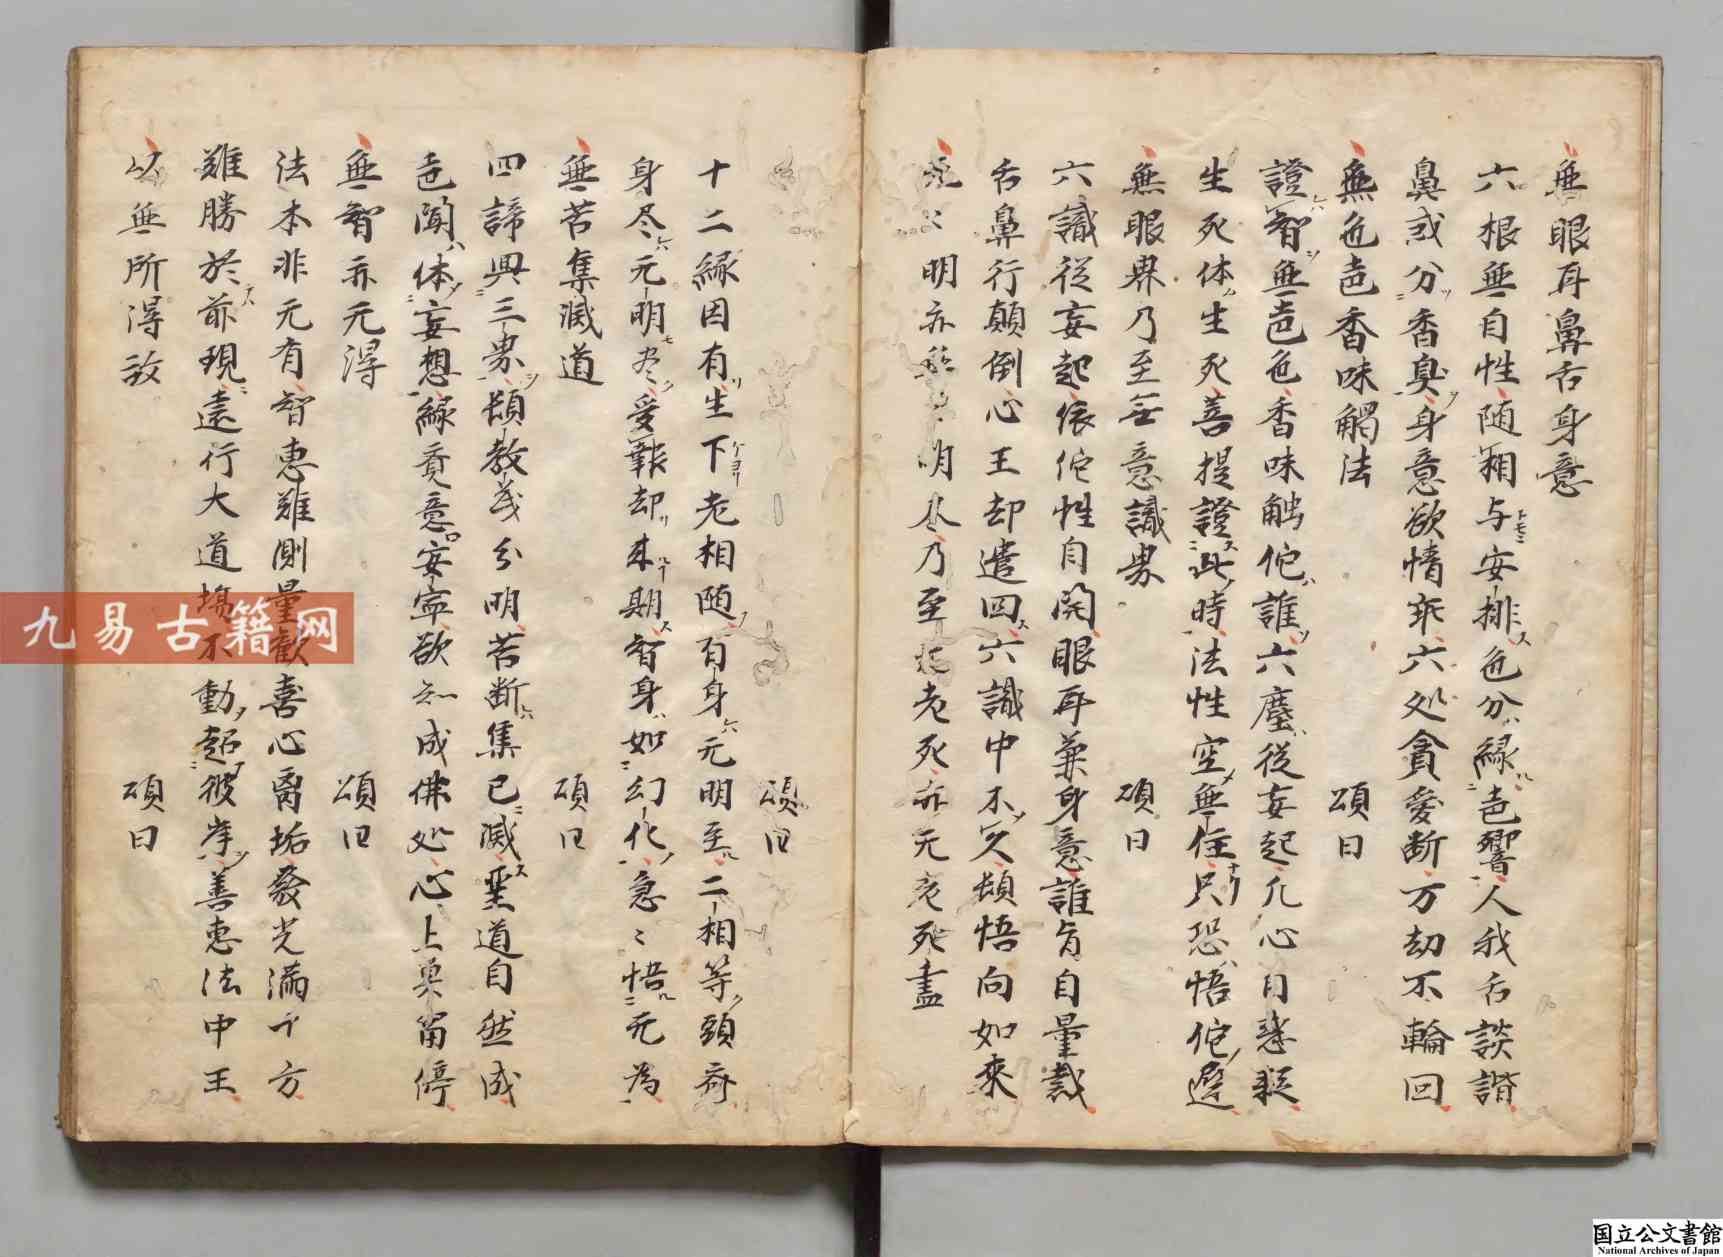 無眼耳鼻舌身意
六根無自性随相与安排色分縁声響人我舌談諧
鼻或分香臭身意欲情乖六処貪愛断万劫不輪回
無色声香味觸法　頌曰
證智無声色香味触佗誰六塵従妄起凡心自惑疑
生死体生死菩提證此時法性空無住只恐悟佗遅
無眼界乃至無意識界　頌曰
六識従妄起依佗性自開眼耳兼身意誰肯自量裁
舌鼻行顛倒心王却遣回六識中不久頓悟向如来
无〻明亦無〻明尽乃至老死亦无老死盡
頌曰
十二縁因有生下老相随有身元明至二相等頭斉
身尽元明尽受報却来期智身如幻化急〻悟无為
無苦集滅道　頌曰
四諦興三界頓教義分明苦断集已滅聖道自然成
声聞体妄想縁覚意安寧欲知成佛処心上莫留停
無智亦无得　頌曰
法本非元有智恵難測量歓喜心離垢發光満十方
難勝於前現遠行大道場不動超彼岸善恵法中王
以無所得故　頌曰
九易古籍网
国立公文書館
National Archives of Japan